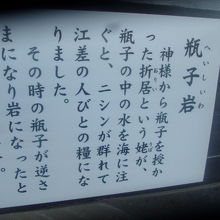 瓶子岩
へいしいわ
神様から瓶子を授か
った折居という姥が、
おりい
うば
瓶子の中の水を海に注
ぐと、ニシンが群れて
江差の人びとの糧にな
りました。
その時の瓶子が逆さ
まになり岩になったと